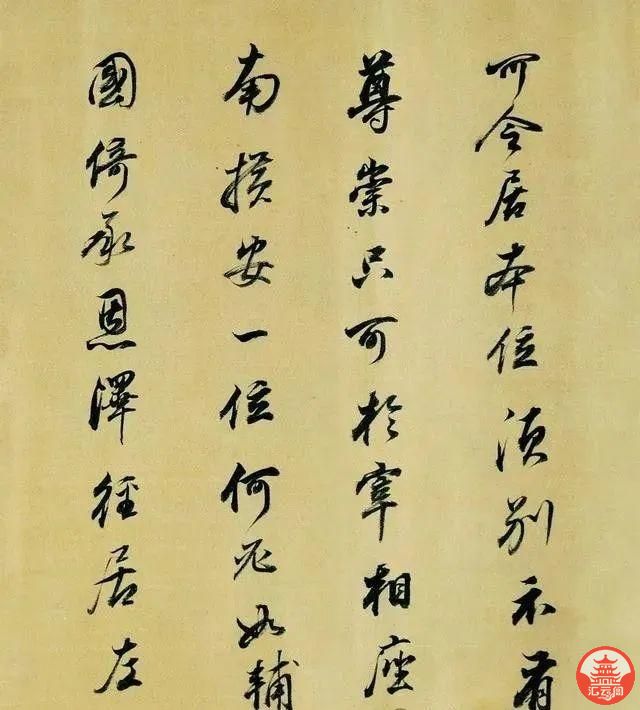 可令居本位須別示有
尊崇只可於宰相座
南橫安一位何如輔
國倚承恩澤徑居左
汇云阁